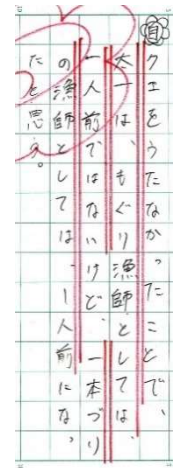 自
クエをうたなかったことで、
太一は、もぐり漁師としては、
一人前ではないけど、一本づり
の漁師としては、一人前になっ
たと思う。